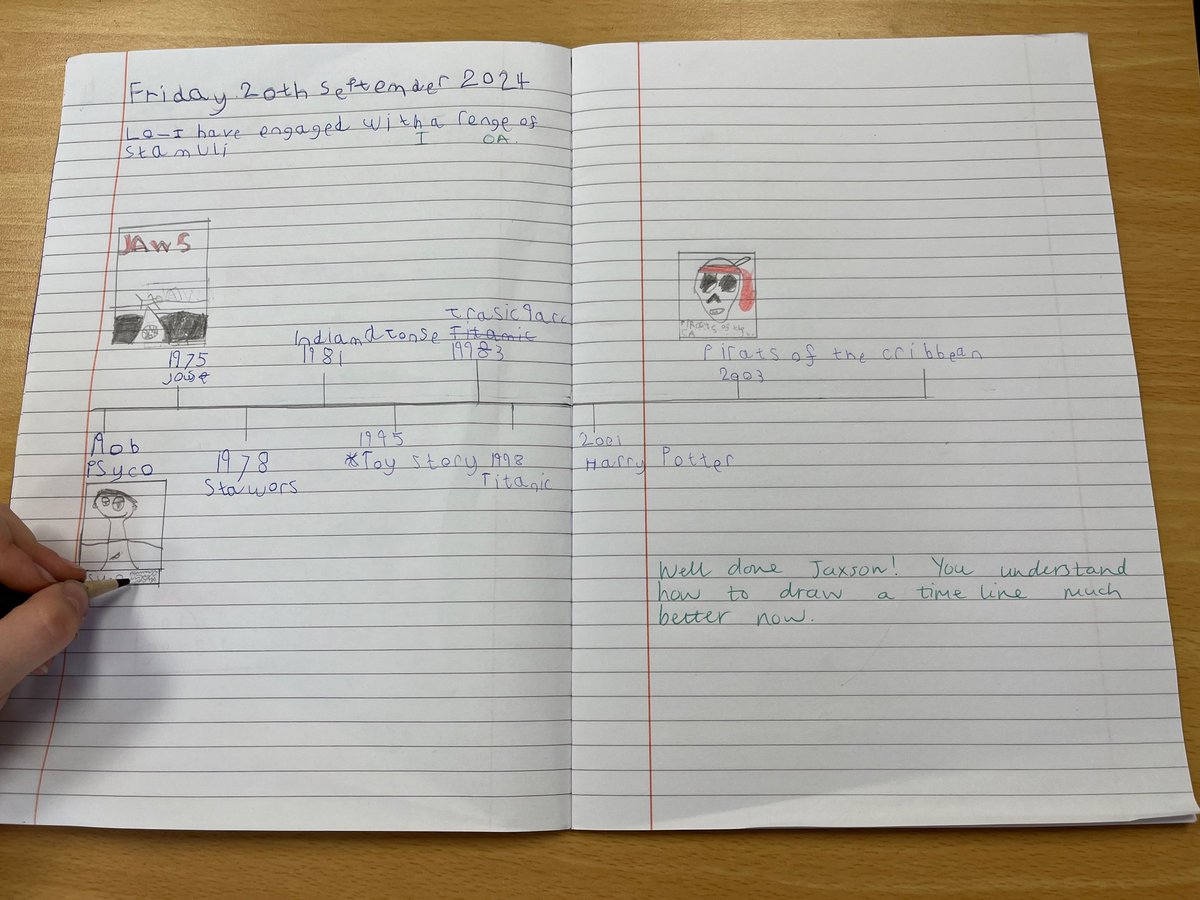 Friday 20th September 2024
LO-I have engaged with a renge of
stamuli
I OA.
JAWS
1975
Indiam
1981
Titanic
1983
Pirats of the cribbean
2003
PSyco
1978
Stawors
1995
*Toy story
1998
Titanic
2001
Harry Potter
Well done Jaxson! You understand
how to draw a time line much
better now.